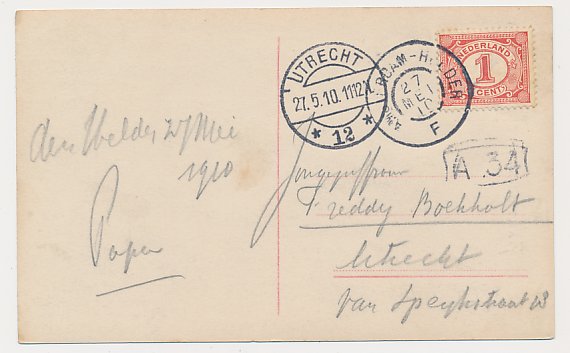 den Helder 27 Mei
1910
Papa
UTRECHT
27.5.10. 11-12V
* 12 *
AMSTERDAM-HELDER
27
MEI
10
F
NEDERLAND
1
CENT
A 34
Jongejuffrouw
Freddy Boekholt
Utrecht
van Speykstraat